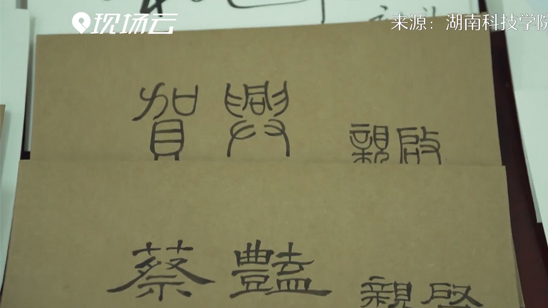 现场云
来源：湖南科技学院
賀 親啟
蔡豔 親啟